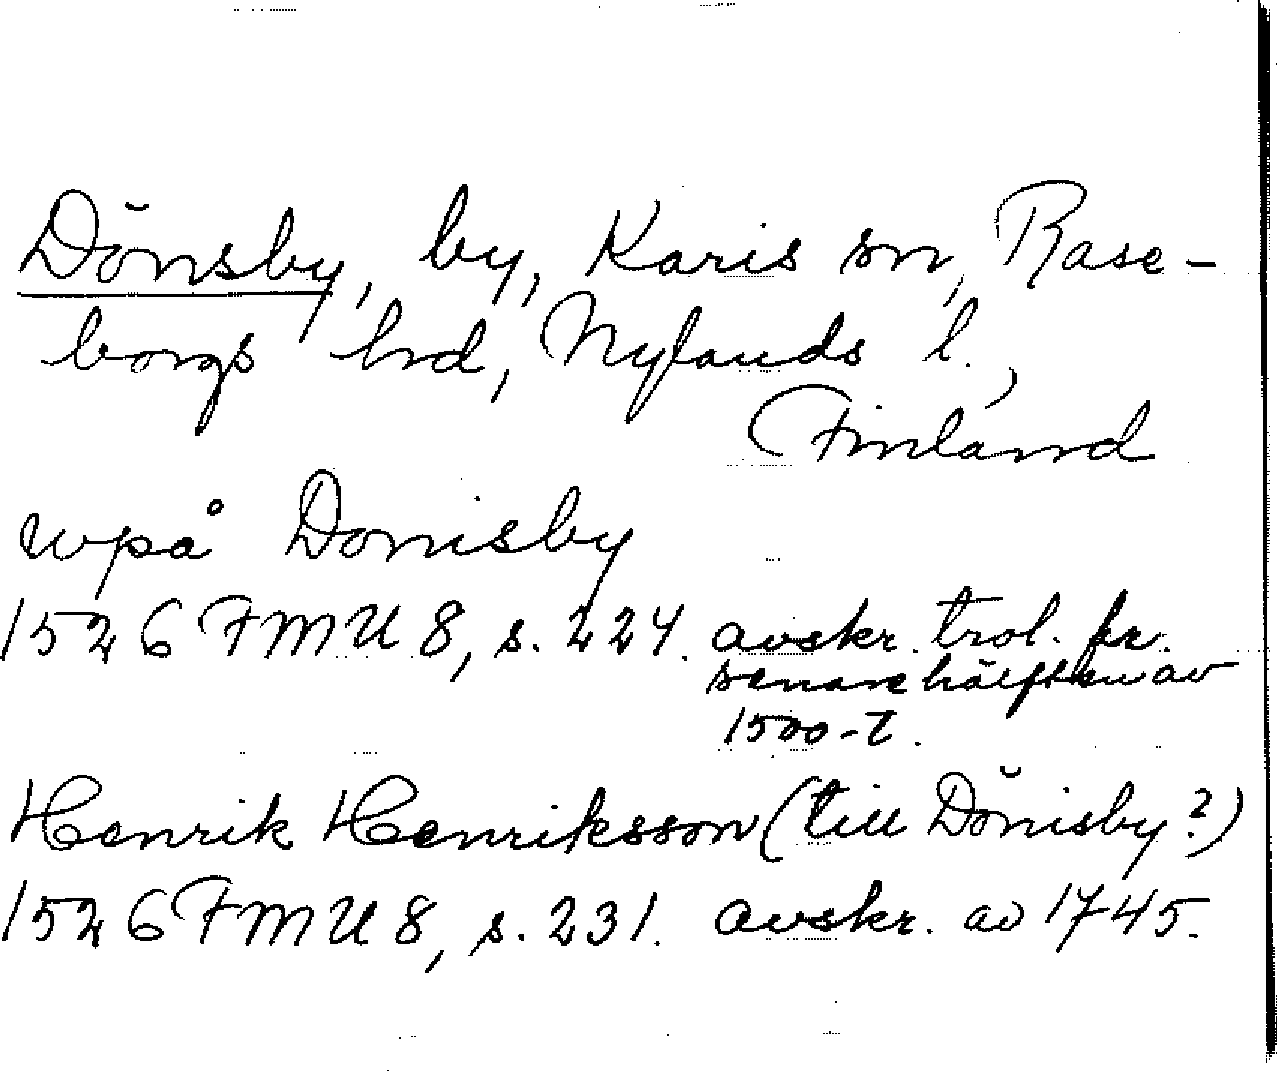 Dönsby, by, Karis sn, Rase-
borgs hrd, Nylands l.,
Finland
wpå Domisby
1526 FMU 8, s. 224. avskr. trol. fr.
senare hälften av
1500-t.
Henrik Henriksson (till Dönisby?)
1526 FMU 8, s. 231. avskr. av 1745.